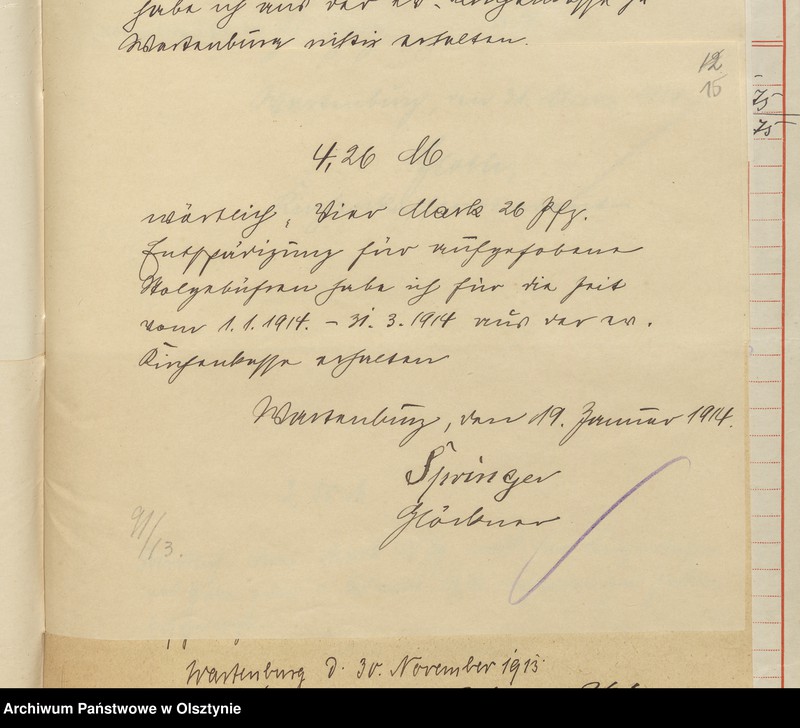 habe ich aus der ev. Kirchenkasse zu
Wartenburg richtig erhalten.
12
15
75
75
4,26 M
wörtlich, Vier Mark 26 Pfg.
Entschädigung für aufgehobene
Stolgebühren habe ich für die Zeit
vom 1.1.1914. – 31.3.1914 aus der ev.
Kirchenkasse erhalten
Wartenburg, den 19. Januar 1914.
Springer
Glöckner
91/13.
Wartenburg d. 30. November 1913.
Archiwum Państwowe w Olsztynie